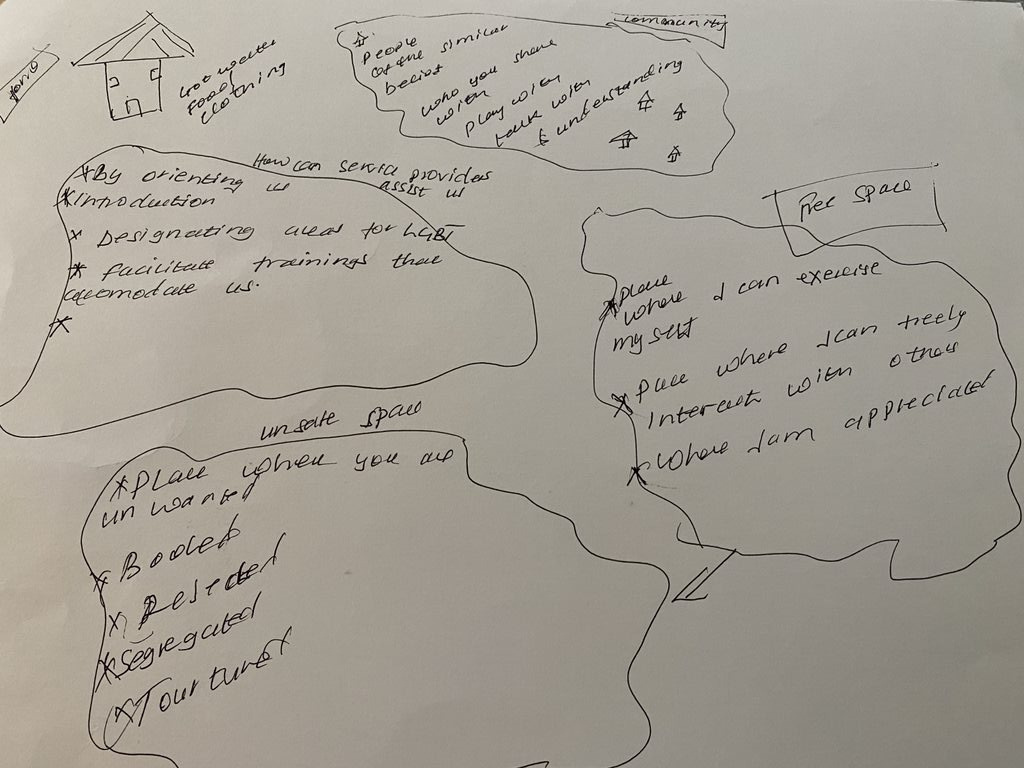 Hot water
Food
clothing
community
People
of the similar
belief
who you share
with
play with
talk with
& understanding
How can service providers
assist us
*By orienting us
*introduction
* Designating areas for LGBT
* facilitate trainings that
accomodate us.
*
free space
*place
where I can exercise
my self
* place where I can freely
Interact with others
* Where I am appreciated
unsafe space
*place where you are
un wanted
* Booed
*
*segregated
*Tourtured